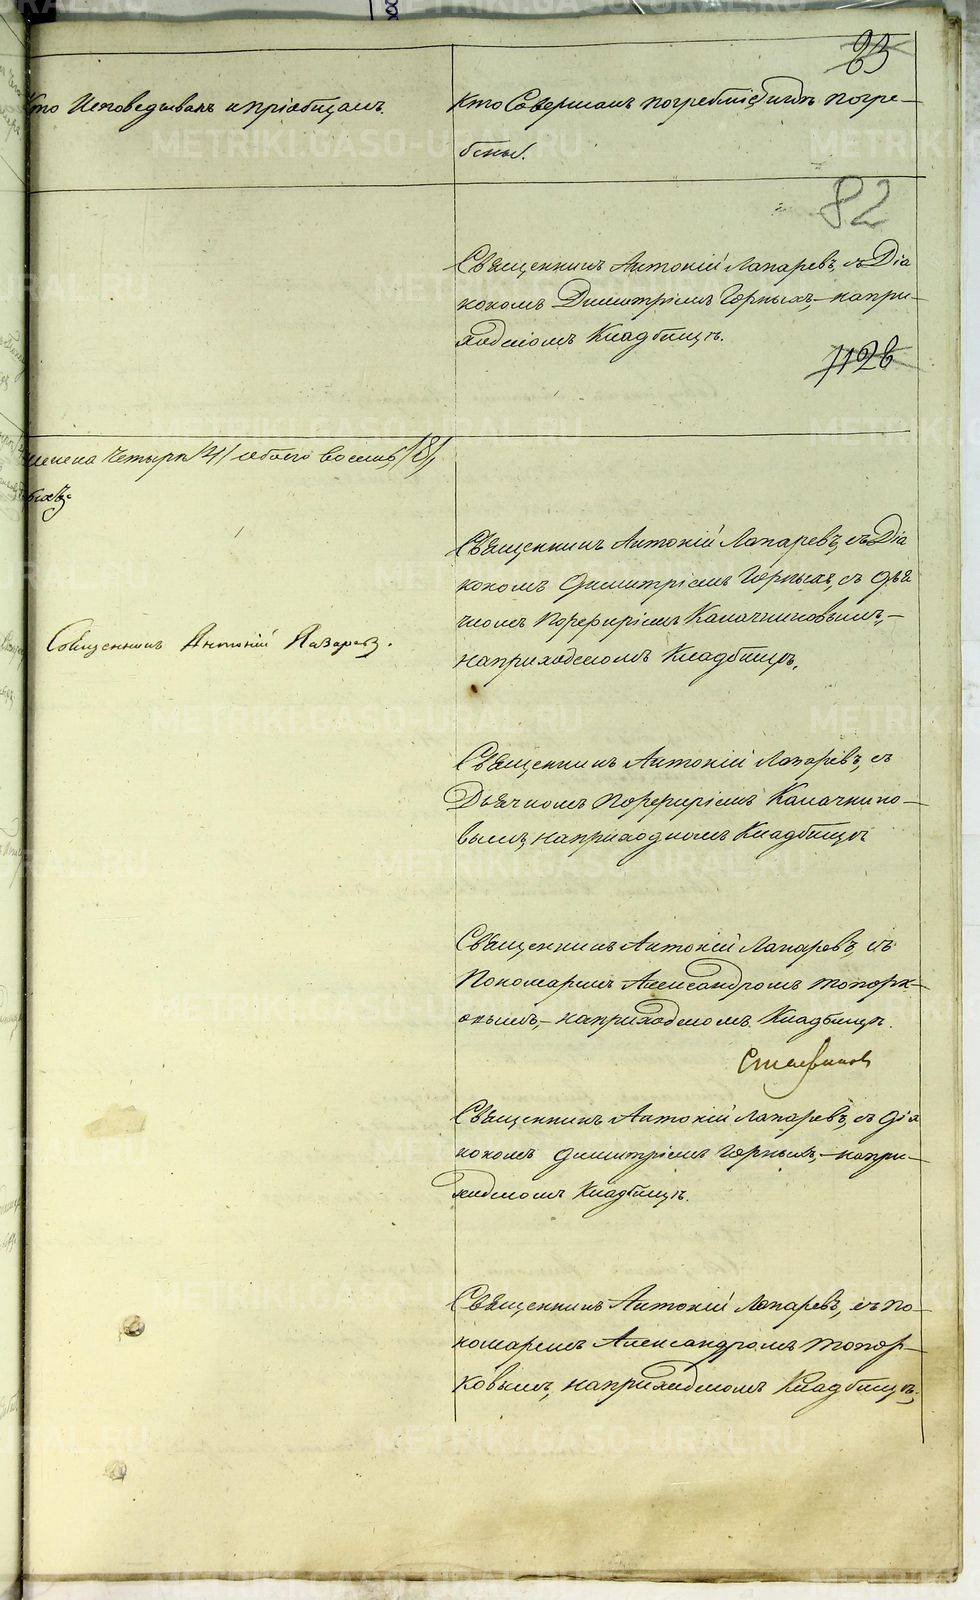 85
Кто Исповедывалъ и пріобщалъ.
Кто Совершалъ погребеніе, и гдѣ погре-
бены.
82
Священникъ Антоній Лапаревъ, съ Діа
кономъ Димитріемъ Горныхъ,- на при-
ходскомъ Кладбищѣ.
1126
Четыри /4/ обоего восемь /8/
Священникъ Антоній Лапаревъ, съ Діа
кономъ Димитріемъ Горныхъ, съ дья
чкомъ Порфиріемъ Калачниковымъ,-
на приходскомъ Кладбищѣ.
Священникъ Антоній Лапаревъ.
Священникъ Антоній Лапаревъ, съ
Дьячкомъ Порфиріемъ Калачнико-
вымъ, на приходскомъ Кладбищѣ
Священникъ Антоній Лапаревъ, съ
Пономаремъ Александромъ Топорк-
овымъ,- на приходскомъ Кладбищѣ.
Священникъ Антоній Лапаревъ, съ Діа
кономъ Димитріемъ Горныхъ,- на при-
ходскомъ Кладбищѣ.
Священникъ Антоній Лапаревъ, съ По-
номаремъ Александромъ Топор-
ковымъ, на приходскомъ Кладбищѣ.
METRIKI.GASO-URAL.RU